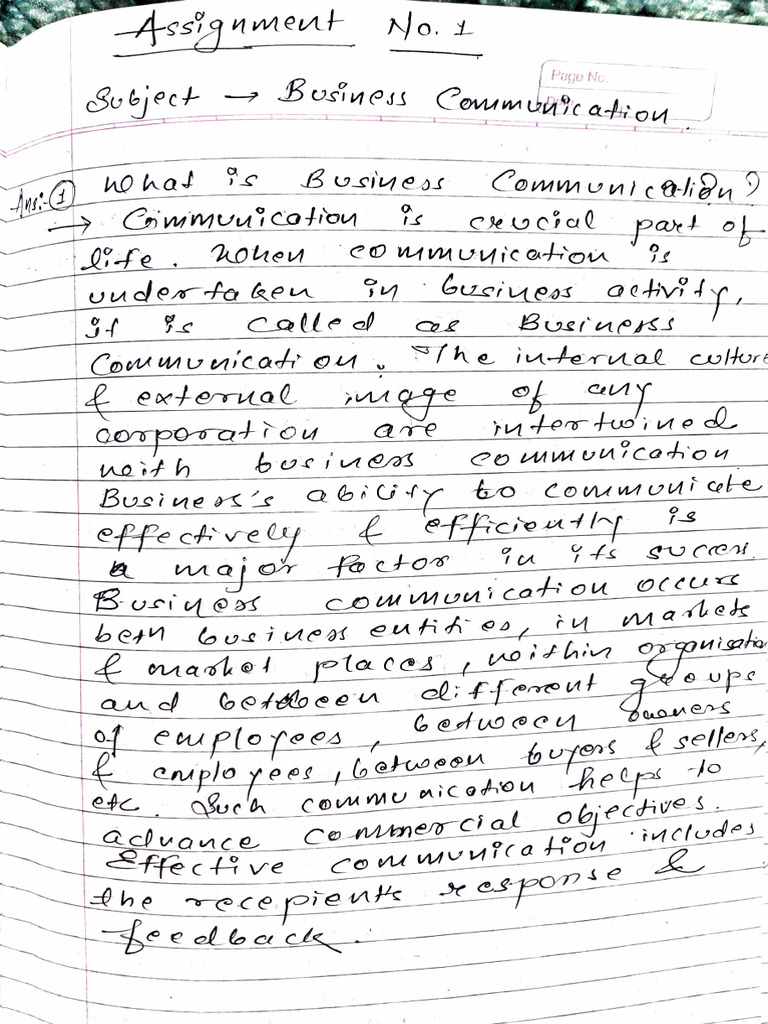 Assignment No. 1
Page No.
Subject → Business Communication.
Ans:- ① What is Business Communication?
→ Communication is crucial part of
life. When communication is
undertaken in business activity,
it is called as Businesss
Communication. The internal culture
& external image of any
corporation are intertwined
with business communication
Business's ability to communicate
effectively & efficiently is
a major factor in its success.
Business communication occurs
betn business entities, in markets
& market places, within organisation
and between different groups
of employees, between owners
& employees, between buyers & sellers,
etc. Such communication helps to
advance commercial objectives.
Effective communication includes
the recepient's response &
feedback.